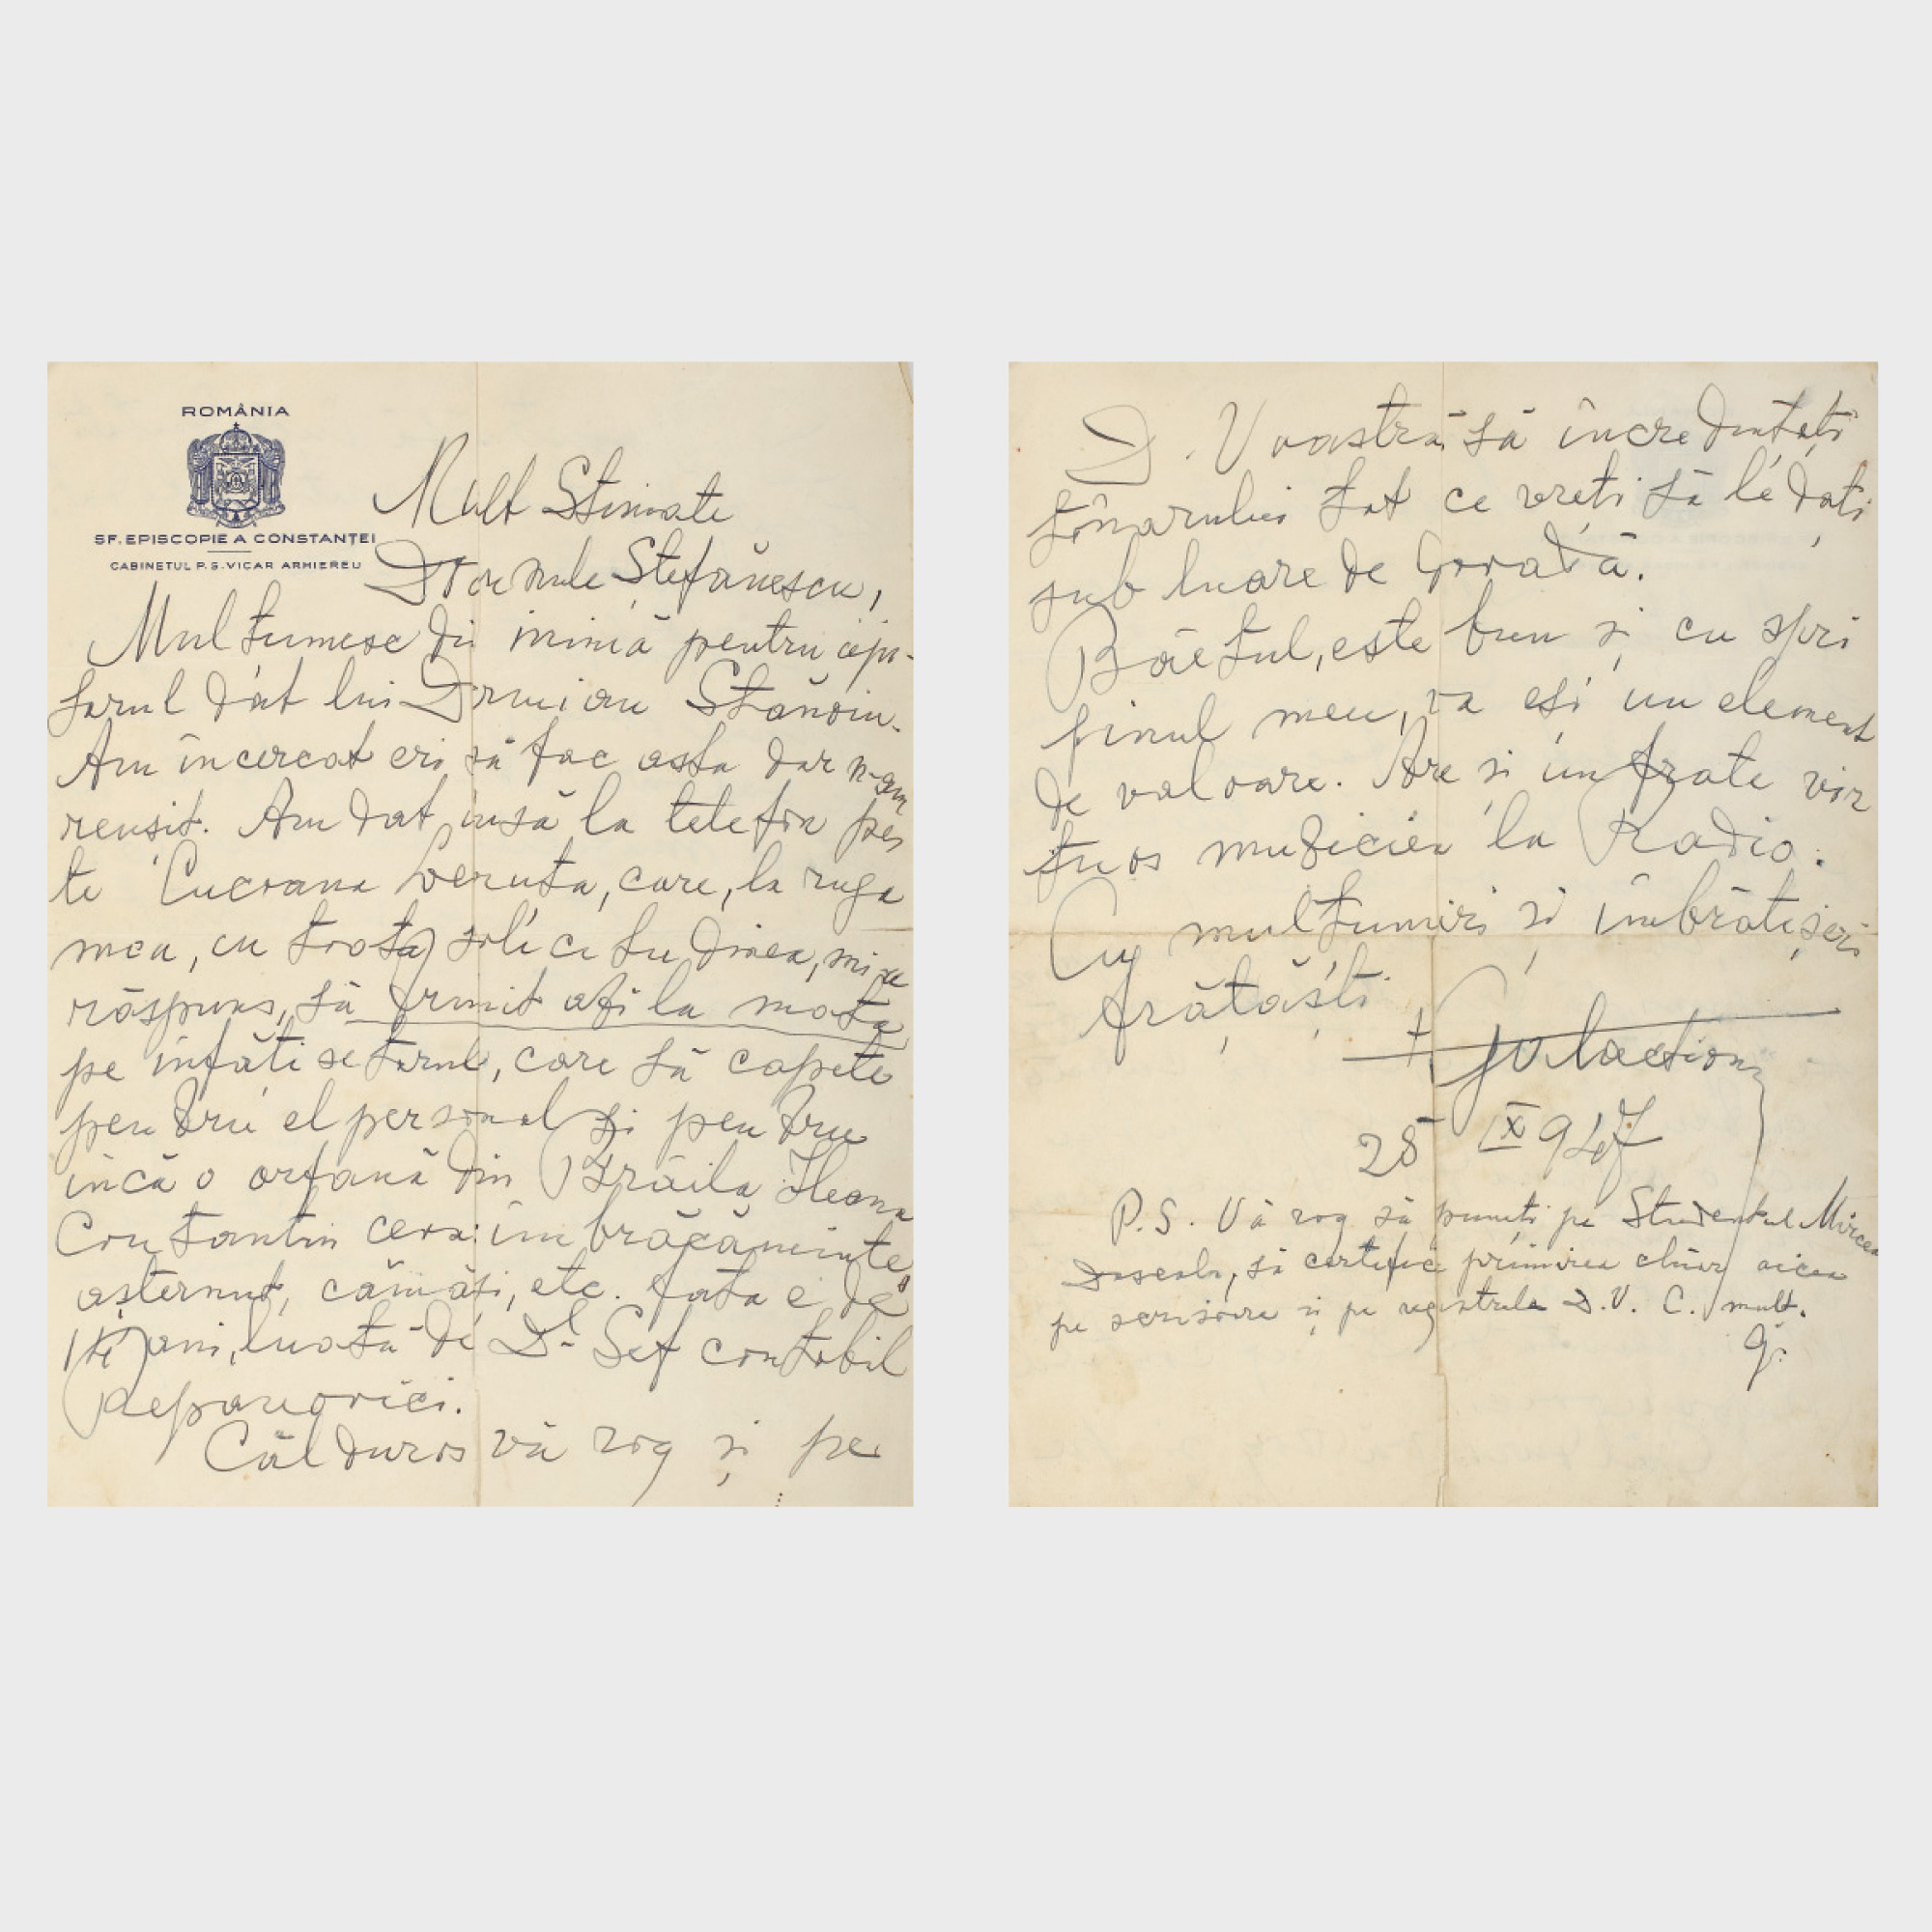 ROMÂNIA
SF. EPISCOPIE A CONSTANȚEI
CABINETUL P.S. VICAR ARHIEREU
Mult Stimate
Domnule Ștefănescu,
Mulțumesc din inimă pentru aju-
torul dat lui Damian Stănoiu.
Am încercat eri să fac asta dar n-am
reușit. Am dat însă la telefon pes
te Cucoana Veruța, care, la ruga
mea, cu toată solicitudinea, mi-a
răspuns, să trimit azi la mata
pe înfățișetorul, care să capete
pentru el personal și pentru
încă o orfană din Brăila Ileana
Constantin ceva: îmbrăcăminte
așternut, cămăși, etc. fata e de
ani, luată de Dl Șef contabil
Călduros vă rog și pe
D. Voastră să încredințați
tânărului tot ce vreți să le dați
sub luare de dovadă.
Băetul, este bun și cu spri
jinul meu, va eși un element
de valoare. Are și un frate vir
tuos muzician la Radio.
Cu mulțumiri și îmbrățișeri
frățăști.
+ Galaction
25 IX 947
P.S. Vă rog să puneți pe Studentul Mircea
Dascalu, să certifice primirea chiar aicea
pe scrisoare și pe registrele D.V. C. mult.
G.